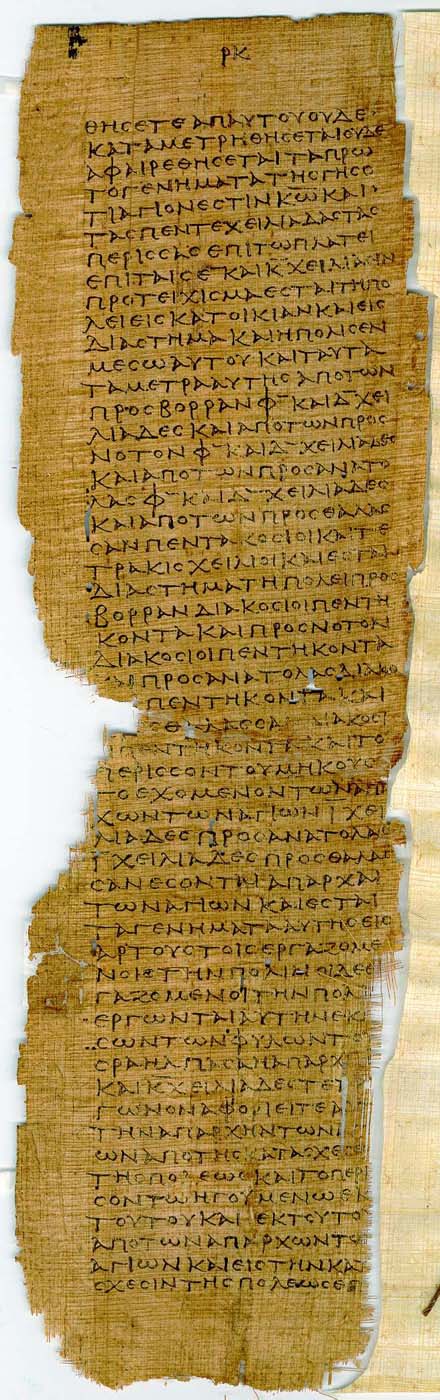 ΡΚ
ΘΗСΕΤΕ ΑΠΑΥΤΟΥΟΥΔΕ
ΚΑΤΑΜΕΤΡΗΘΗСΕΤΑΙΟΥΔΕ
ΑΦΑΙΡΕΘΗСΕΤΑΙΤΑΠΡΩ
ΤΟΓΕΝΗΜΑΤΑΤΗСΓΗСΟ
ΤΙΑΓΙΟΝΕСΤΙΝΚΩΚΑΙ
ΤΑСΠΕΝΤΕΧΕΙΛΙΑΔΑСΤΑС
ΠΕΡΙССΑСΕΠΙΤΩΠΛΑΤΕΙ
ΕΠΙΤΑΙСΕ ΚΑΙΚ ΧΕΙΛΙΑСΙΝ
ΠΡΟΤΕΙΧΙСΜΑΕСΤΑΙΤΗΠΟ
ΛΕΙΕΙСΚΑΤΟΙΚΙΑΝΚΑΙΕΙС
ΔΙΑСΤΗΜΑΚΑΙΗΠΟΛΙСΕΝ
ΜΕСΩΑΥΤΟΥΚΑΙΤΑΥΤΑ
ΤΑΜΕΤΡΑΑΥΤΗСΑΠΟΤΩΝ
ΠΡΟСΒΟΡΡΑΝΦ ΚΑΙΔ ΧΕΙ
ΛΙΑΔΕСΚΑΙΑΠΟΤΩΝΠΡΟС
ΝΟΤΟΝΦ ΚΑΙΔ ΧΕΙΛΙΑΔΕС
ΚΑΙΑΠΟΤΩΝΠΡΟСΑΝΑΤΟ
ΛΑСΦ ΚΑΙΔ ΧΕΙΛΙΑΔΕС
ΚΑΙΑΠΟΤΩΝΠΡΟСΘΑΛΑС
СΑΝΠΕΝΤΑΚΟСΙΟΙΚΑΙΤΕ
ΤΡΑΚΙСΧΕΙΛΙΟΙΚΑΙΕСΤΑΙ
ΔΙΑСΤΗΜΑΤΗΠΟΛΕΙΠΡΟС
ΒΟΡΡΑΝΔΙΑΚΟСΙΟΙΠΕΝΤΗ
ΚΟΝΤΑΚΑΙΠΡΟСΝΟΤΟΝ
ΔΙΑΚΟСΙΟΙΠΕΝΤΗΚΟΝΤΑ
ΚΑΙΠΡΟСΑΝΑΤΟΛΑСΔΙΑΚΟ
ΠΕΝΤΗΚΟΝΤΑΚΑΙ
СΘΑΛΑССΑ ΙΑΚΟСΙ
ΙΠΕΝΤΗΚΟΝΤΑΚΑΙΤΟ
ΠΕΡΙССΟΝΤΟΥΜΗΚΟΥС
ΤΟΕΧΟΜΕΝΟΝΤΩΝΑΠ
ΧΩΝΤΩΝΑΓΙΩΝΙ ΧΕΙ
ΛΙΑΔΕСΠΡΟСΑΝΑΤΟΛΑС
Ι ΧΕΙΛΙΑΔΕСΠΡΟСΘΑΛΑС
СΑΝΕСΟΝΤΑΙΑΠΑΡΧΑΙ
ΤΩΝΑΓΙΩΝΚΑΙΕСΤΑΙ
ΤΑΓΕΝΗΜΑΤΑΑΥΤΗСΕΙС
ΑΡΤΟΥСΤΟΙСΕΡΓΑΖΟΜΕ
ΝΟΙСΤΗΝΠΟΛΙΝΟΙΔΕΕ
ΓΑΖΟΜΕΝΟΙΤΗΝΠΟΛ
ΕΡΓΩΝΤΑΙΑΥΤΗΝΕΚ
СΩΝΤΩΝΦΥΛΩΝΤ
СΡΑΗΛΠΑСΑΗΑΠΑΡΧ
ΚΑΙΚΧΕΙΛΙΑΔΕСΤΕΤ
ΓΩΝΟΝΑΦΟΡΙΕΙΤΕΑ
ΤΗΝΑΠΑΡΧΗΝΤΩΝ
ΩΝΑΠΟΤΗСΚΑΤΑСΧΕСΕ
ΤΗСΠΟΛΕΩСΚΑΙΤΟΠΕΡΙ
СΟΝΤΩΗΓΟΥΜΕΝΩΕΚ
ΤΟΥΤΟΥΚΑΙ ΕΚΤΟΥΤΟ
ΑΠΟΤΩΝΑΠΑΡΧΩΝΤΩ
ΑΓΙΩΝΚΑΙΕΙСΤΗΝΚΑ
СΧΕСΙΝΤΗСΠΟΛΕΩСΕΠ